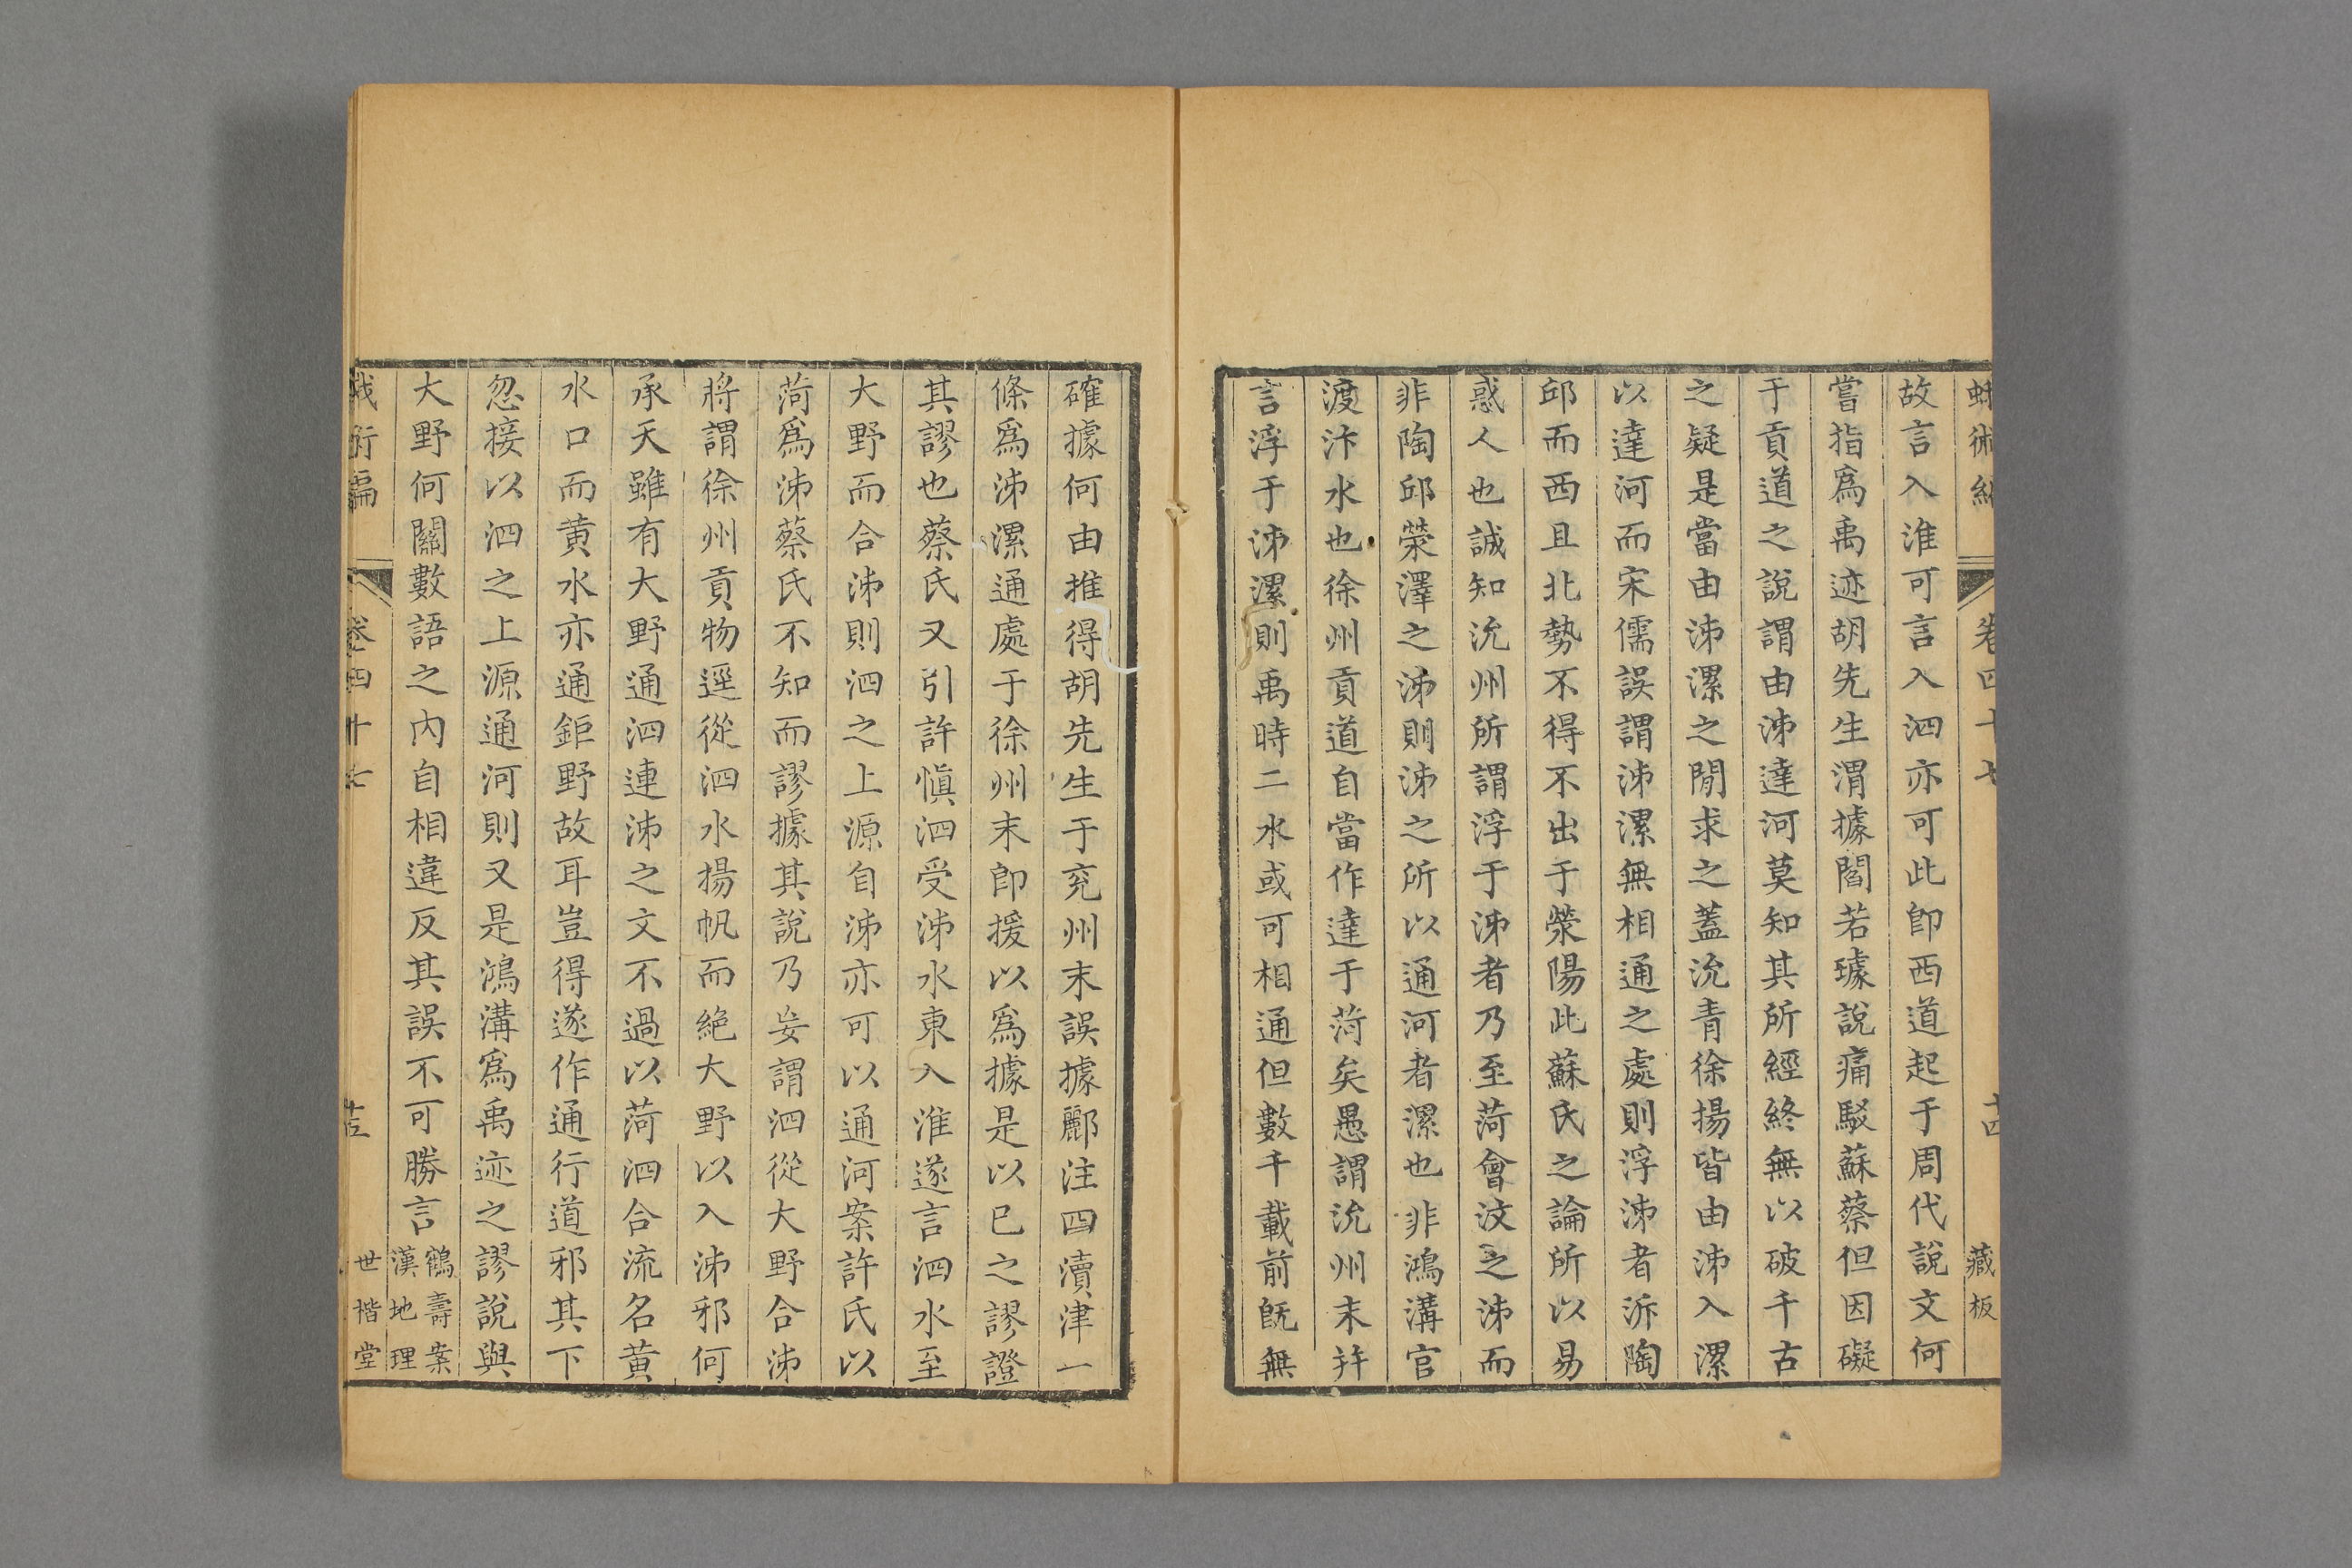 蛾術編 卷四十七 十四 藏板
故言入淮可言入泗亦可此卽西道起于周代說文何
嘗指爲禹迹胡先生渭據閻若璩說痛駁蘇蔡但因礙
于貢道之說謂由泲達河莫知其所經終無以破千古
之疑是當由泲漯之閒求之蓋沇青徐揚皆由泲入漯
以達河而宋儒誤謂泲漯無相通之處則浮泲者泝陶
邱而西且北勢不得不出于滎陽此蘇氏之論所以易
惑人也誠知沇州所謂浮于泲者乃至菏會汶之泲而
非陶邱滎澤之泲則泲之所以通河者漯也非鴻溝官
渡汴水也徐州貢道自當作達于菏矣愚謂沇州末幷
言浮于泲漯則禹時二水或可相通但數千載前旣無
確據何由推得胡先生于兖州末誤據酈注四瀆津一
條爲泲漯通處于徐州末卽援以爲據是以已之謬證
其謬也蔡氏又引許愼泗受泲水東入淮遂言泗水至
大野而合泲則泗之上源自泲亦可以通河案許氏以
菏爲泲蔡氏不知而謬據其說乃妄謂泗從大野合泲
將謂徐州貢物逕從泗水揚帆而絶大野以入泲邪何
承天雖有大野通泗連泲之文不過以菏泗合流名黃
水口而黃水亦通鉅野故耳豈得遂作通行道邪其下
忽接以泗之上源通河則又是鴻溝爲禹迹之謬說與
大野何關數語之內自相違反其誤不可勝言鶴壽案漢地理
蛾術編 卷四十七 十五 世楷堂